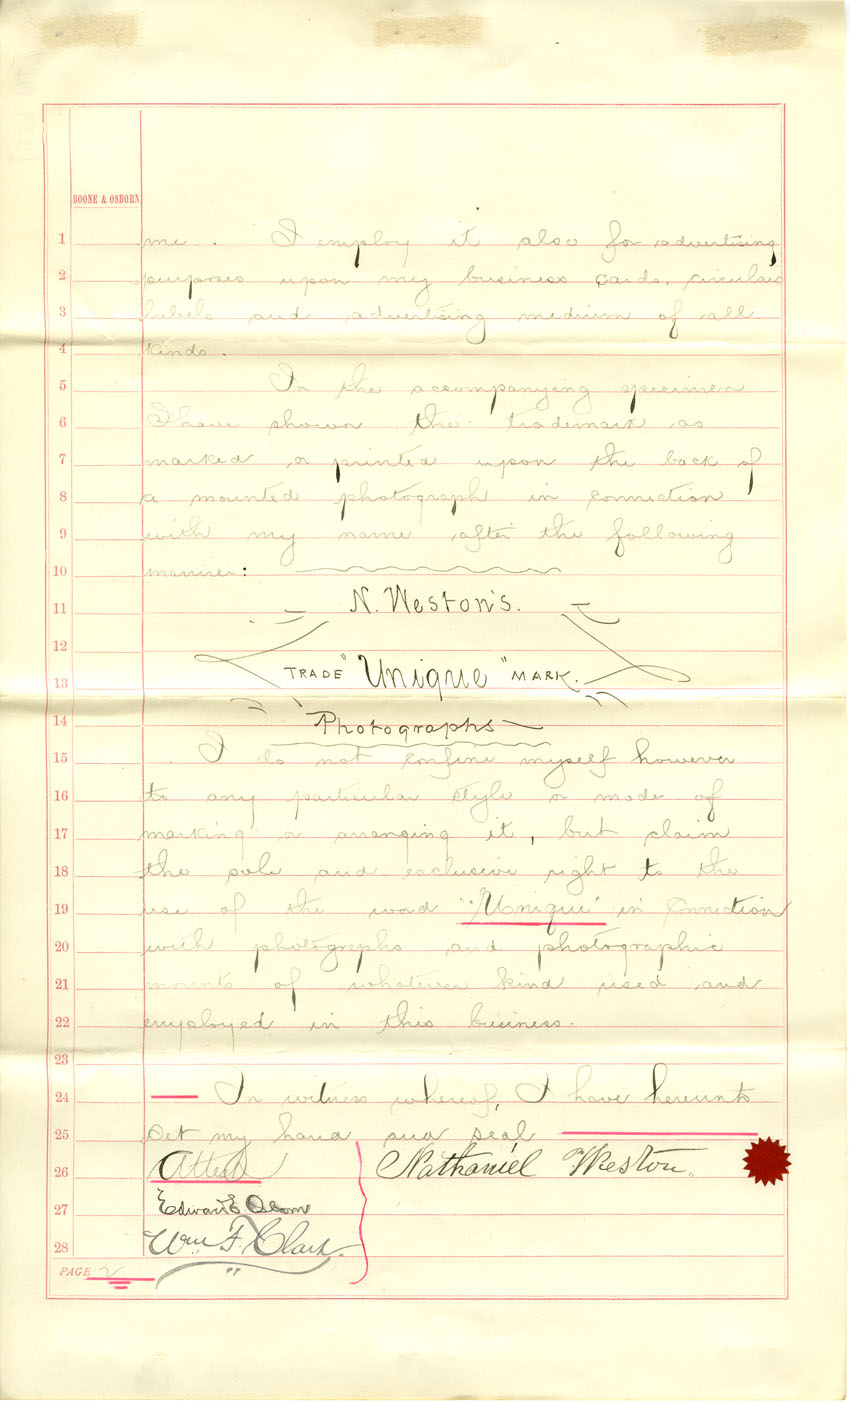 BOONE & OSBORN
1 me. I employ it also for advertising
2 purposes upon my business cards, circulars
3 labels and advertising medium of all
4 kinds.
5 In the accompanying specimen
6 I have shown the trademark as
7 marked or printed upon the back of
8 a mounted photograph in connection
9 with my name after the following
10 manner:
11 N. Weston's.
12
13 TRADE "Unique" MARK.
14 Photographs
15 I do not confine myself however
16 to any particular style or mode of
17 marking or arranging it, but claim
18 the sole and exclusive right to the
19 use of the word "Unique" in connection
20 with photographs and photographic
21 mounts of whatever kind used and
22 employed in this business.
23
24 In witness whereof, I have hereunto
25 set my hand and seal
26 Attest Nathaniel Weston.
27 Edward E Osborn
28 Wm. F. Clark.
PAGE 2